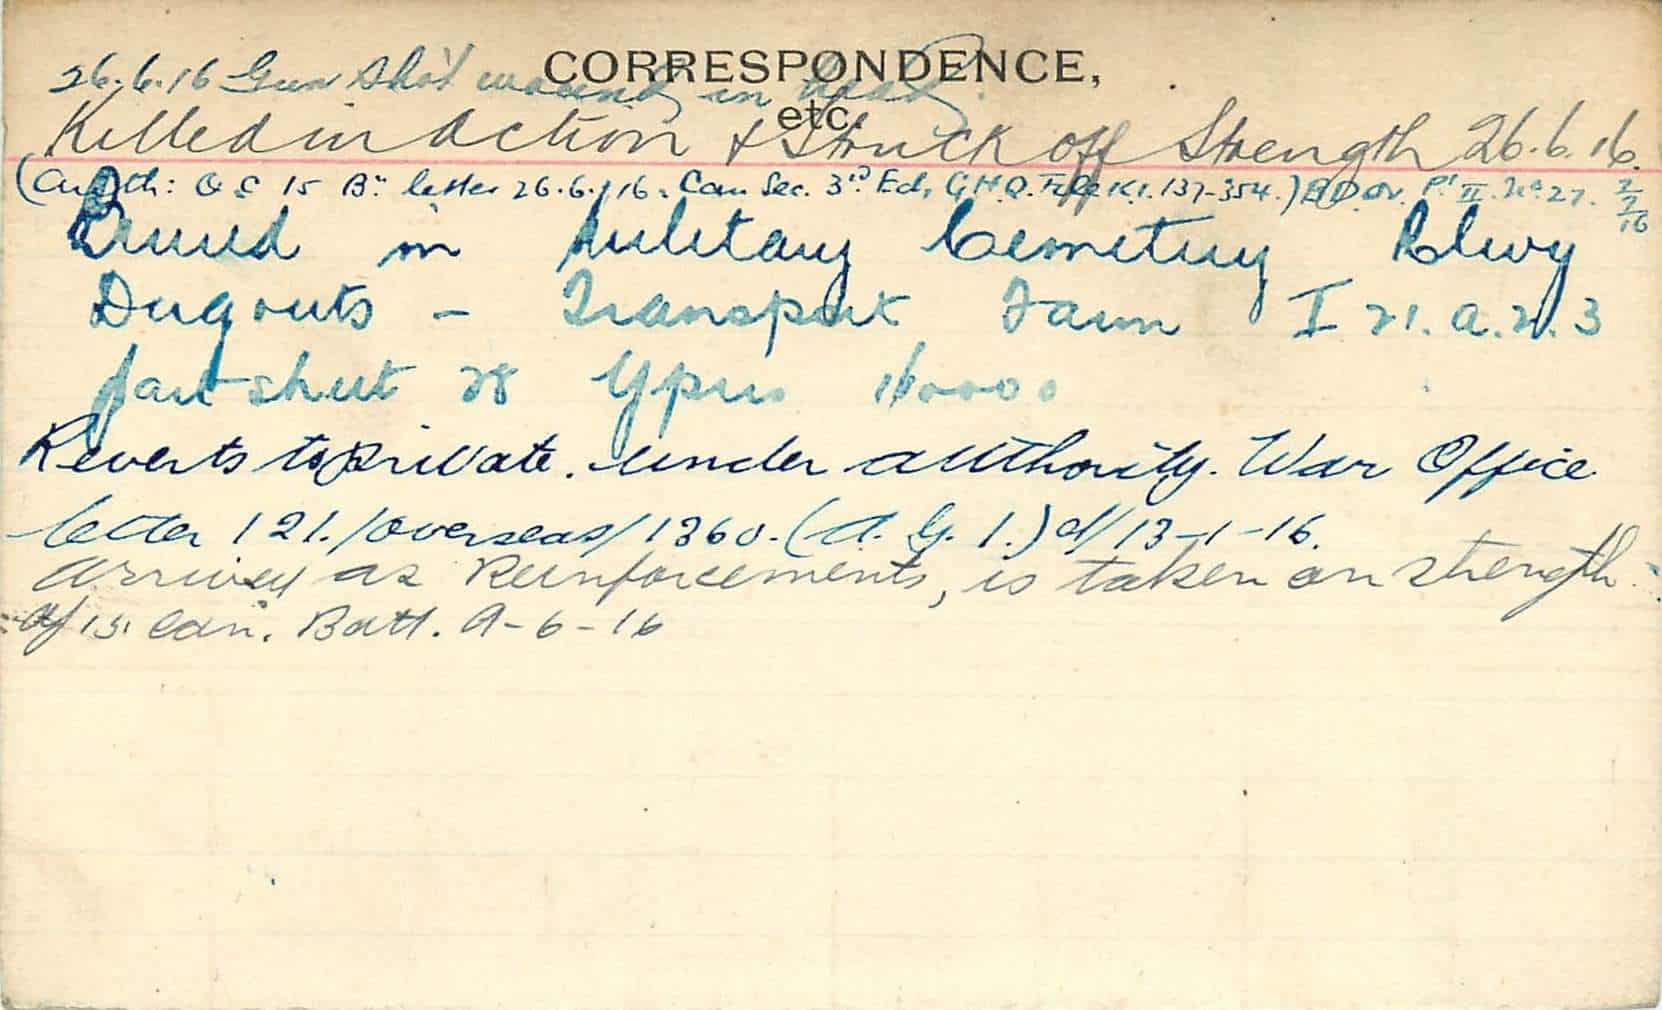 CORRESPONDENCE,
etc.
26.6.16 Gun shot wound in head.
Killed in action & Struck off Strength 26.6.16.
(Auth: O C 15 Bn letter 26.6.16. Can Sec. 3rd Ech, G.H.Q. File K1.137-354.) B.D.Or. Pt II. No 27. 2/7/16
Buried in Military Cemetery Rlwy
Dugouts - Transport Farm I 21. a. 2. 3
part sheet 28 Ypres
Reverts to private. under authority. War Office
letter 121./overseas/1360. (A. G. 1.) d/13-1-16.
Arrived as Reinforcements, is taken on strength
of 15 Cdn. Batt. 9-6-16